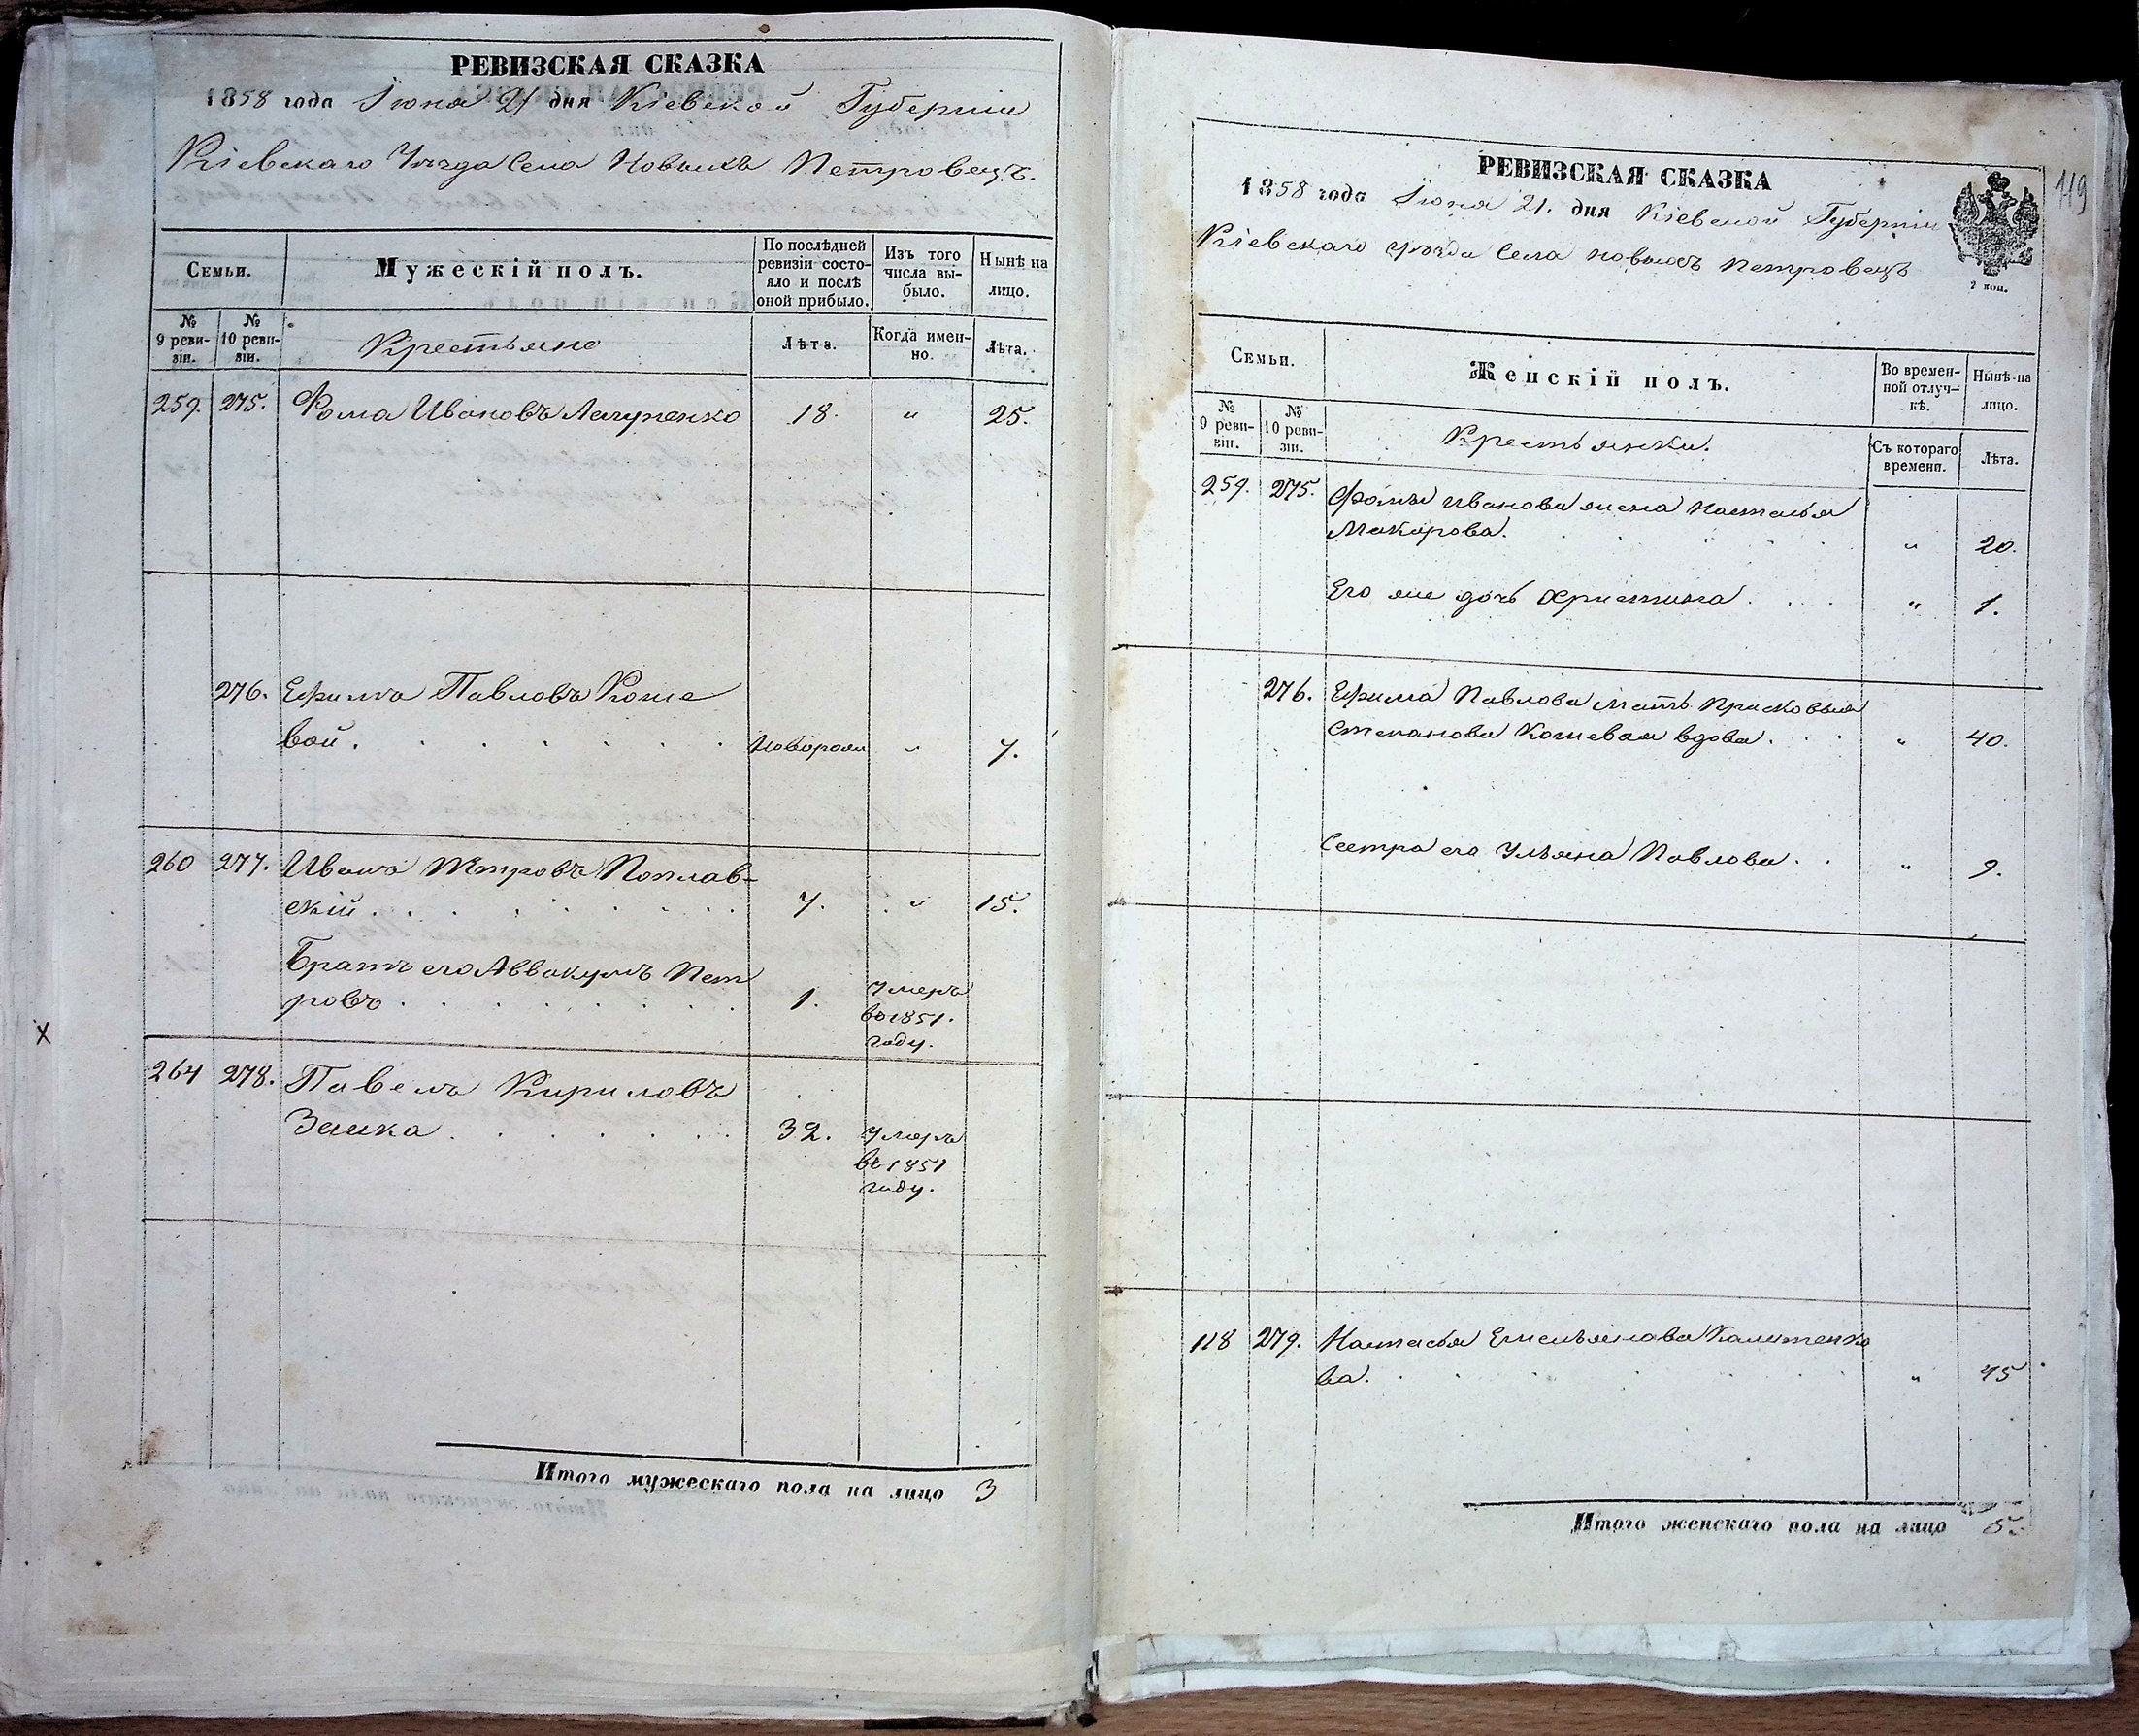 РЕВИЗСКАЯ СКАЗКА
1858 года Іюня 21 дня Кіевской Губерніи
Кіевскаго Уѣзда Села Новыхъ Петровецъ.
Семьи.
Мужескій полъ.
По послѣдней ревизіи состояло и послѣ оной прибыло.
Изъ того числа выбыло.
Нынѣ на лицо.
№ 9 ревизіи.
№ 10 ревизіи.
Крестьяне
Лѣта.
Когда именно.
Лѣта.
259. 275. Фома Ивановъ 18. " 25.
276. Ефимъ Павловъ Коше
вой. Новорож " 7.
260 277. Иванъ Петровъ Поплав-
скій. 7. " 15.
Братъ его Аввакумъ Пет
ровъ 1. Умеръ
въ 1851.
году.
264 278. Павелъ Кириловъ
Заика 32. Умеръ
въ 1851
году.
Итого мужескаго пола на лицо 3
119
РЕВИЗСКАЯ СКАЗКА
1858 года Іюня 21. дня Кіевской Губерніи
Кіевскаго уѣзда Села новыхъ Петровецъ
2 коп.
Семьи.
Женскій полъ.
Во временной отлучкѣ.
Нынѣ на лицо.
№ 9 ревизіи.
№ 10 ревизіи.
Крестьянки.
Съ котораго времени.
Лѣта.
259. 275. Фомы Иванова жена Настасья
Макарова. " 20.
Его же дочь Христина " 1.
276. Ефима Павлова мать Прасковья
Степанова Кошевая вдова. " 40.
Сестра его Ульяна Павлова. " 9.
118 279. Настасья Емельянова Калитенко
ва. " 45
Итого женскаго пола на лицо 5.